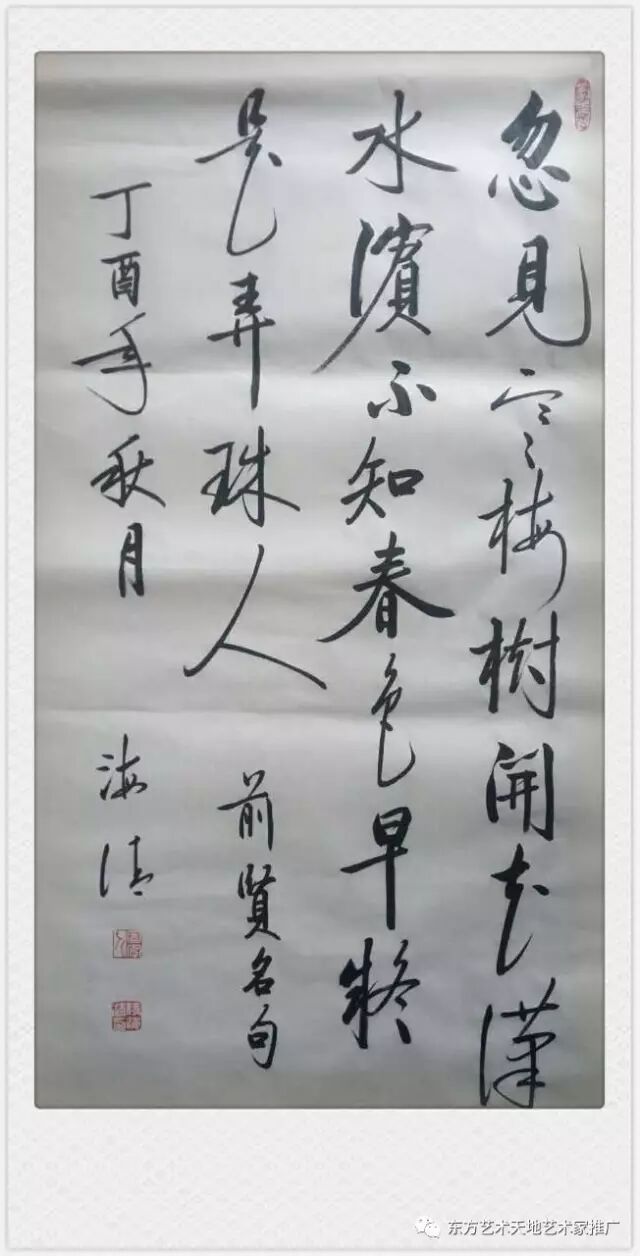 忽見寒梅樹開花漢
水濱不知春色早疑
是弄珠人 前賢名句
丁酉年秋月 海清
东方艺术天地艺术家推广